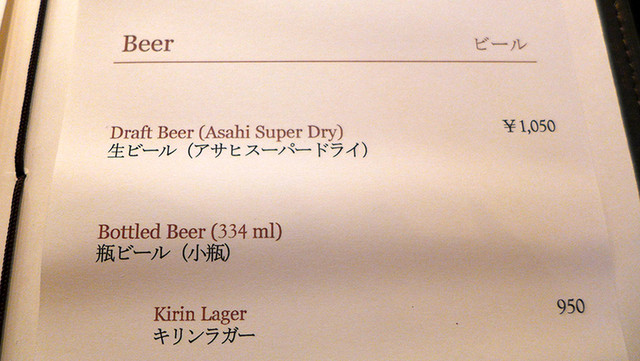 Beer ビール
Draft Beer (Asahi Super Dry) ¥1,050
生ビール（アサヒスーパードライ）
Bottled Beer (334 ml)
瓶ビール（小瓶）
Kirin Lager 950
キリンラガー